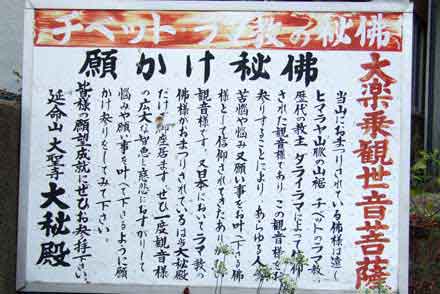 チベット ラマ教の秘佛
願かけ秘佛
大楽乗観世音菩薩
当山におまつりされている佛様は遠く
ヒマラヤ山脈の山裾 チベットのラマ教
歴代の教主 ダライラマによって信仰
された観音様であり この観音様をお
参りすることにより あらゆる人々の
苦悩や悩み 又願い事をお叶へ下さる佛
様として信仰されてきたあり
観音様です。又日本においてラマ教の
佛様がおまつりされているは当大秘殿
だけ 御座居ます。ぜひ一度観音様
の広大な智恵と慈悲におすがりして
悩みや願い事を叶へて下さるように願
かけ参りをしてみて下さい。
皆様の願望成就にぜひお参拝下さい。
延命山 大聖寺 大秘殿